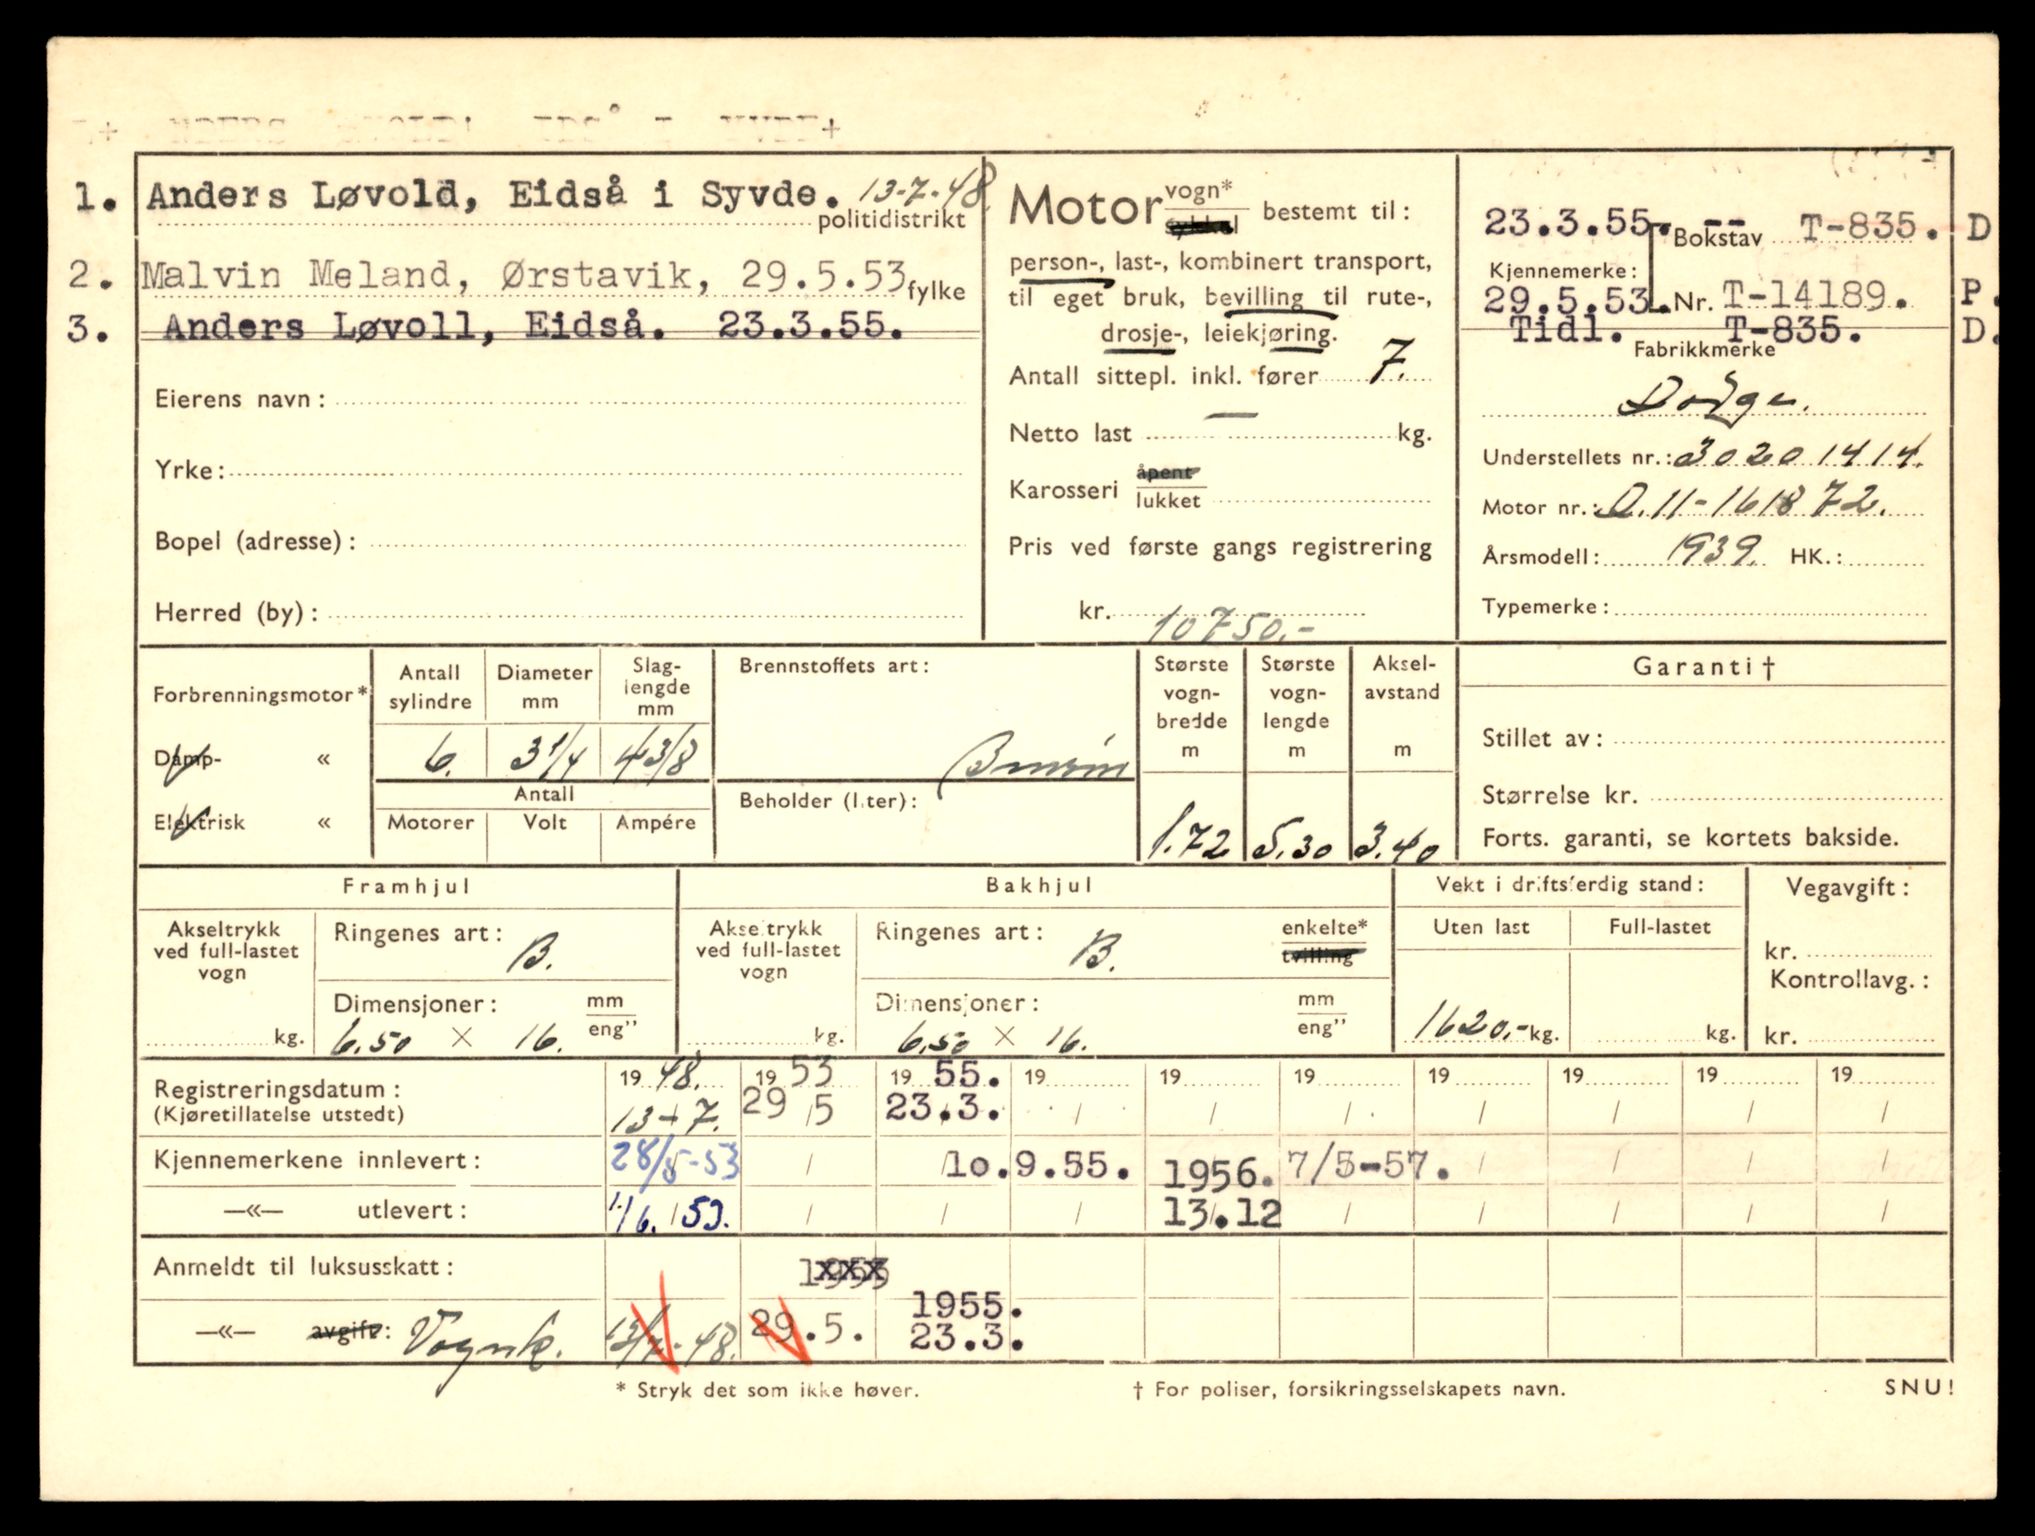 1. Anders Løvold, Eidså i Syvde. 13-7-48.
politidistrikt
2. Malvin Meland, Ørstavik, 29.5.53
fylke
3. Anders Løvoll, Eidså. 23.3.55.
Eierens navn:
Yrke:
Bopel (adresse):
Herred (by):
Motor vogn* sykkel bestemt til:
person-, last-, kombinert transport,
til eget bruk, bevilling til rute-,
drosje-, leiekjøring.
Antall sittepl. inkl. fører 7.
Netto last — kg.
Karosseri åpent lukket
Pris ved første gangs registrering
kr. 10750.-
23.3.55. -- Bokstav T-835. D
Kjennemerke:
29.5.53. Nr. T-14189. P.
Tidl. T-835. D.
Fabrikkmerke
Dodge.
Understellets nr.: 30201414.
Motor nr.: D.11-161872.
Årsmodell: 1939. HK.:
Typemerke:
Forbrenningsmotor*
Damp- «
Elektrisk «
Antall sylindre
6.
Diameter mm
3 1/4
Slag-lengde mm
4 3/8
Antall
Motorer Volt Ampére
Brennstoffets art:
Bensin
Beholder (liter):
Største vogn-bredde m
1.72
Største vogn-lengde m
5.30
Aksel-avstand m
3.40
Garanti †
Stillet av:
Størrelse kr.
Forts. garanti, se kortets bakside.
Framhjul
Akseltrykk ved full-lastet vogn
kg.
Ringenes art: B.
Dimensjoner: mm eng”
6.50 × 16.
Bakhjul
Akseltrykk ved full-lastet vogn
kg.
Ringenes art: B.
enkelte* tvilling
Dimensjoner: mm eng”
6.50 × 16.
Vekt i driftsferdig stand:
Uten last Full-lastet
1620.- kg. kg.
Vegavgift:
kr.
Kontrollavg.:
kr.
Registreringsdatum: 19 48. 19 53 19 55. 19 19 19 19 19 19 19
(Kjøretillatelse utstedt) 13-7. 29 5 23.3.
Kjennemerkene innlevert: 28/5-53 10.9.55. 1956. 7/5-57.
—«— utlevert: 1/6. 53. 13.12
Anmeldt til luksusskatt: 1953
1955.
—«— avgift: Vognk. 13/7-48. 29.5. 23.3.
* Stryk det som ikke høver.
† For poliser, forsikringsselskapets navn.
SNU!